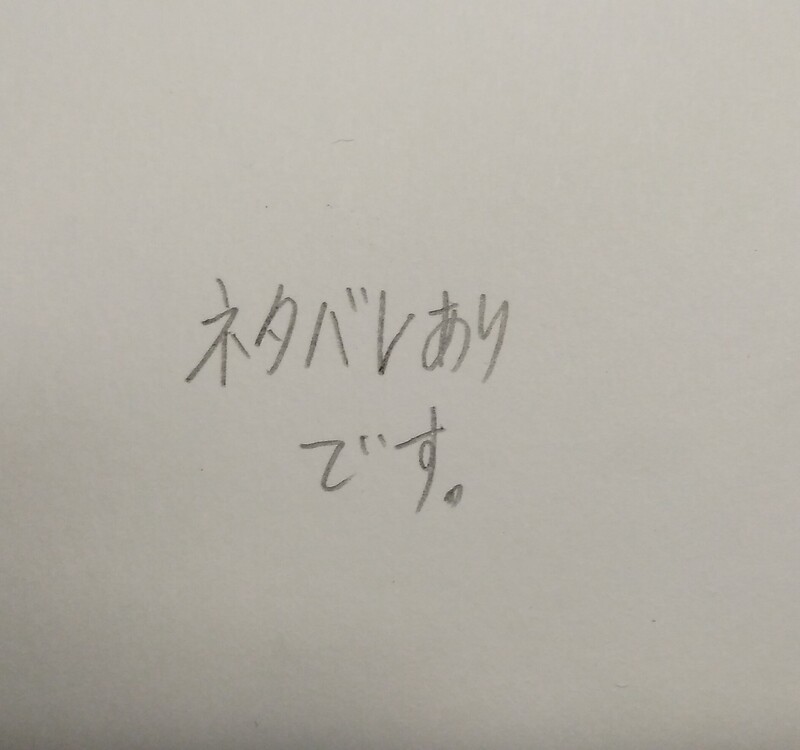 ネタバレあり
です。